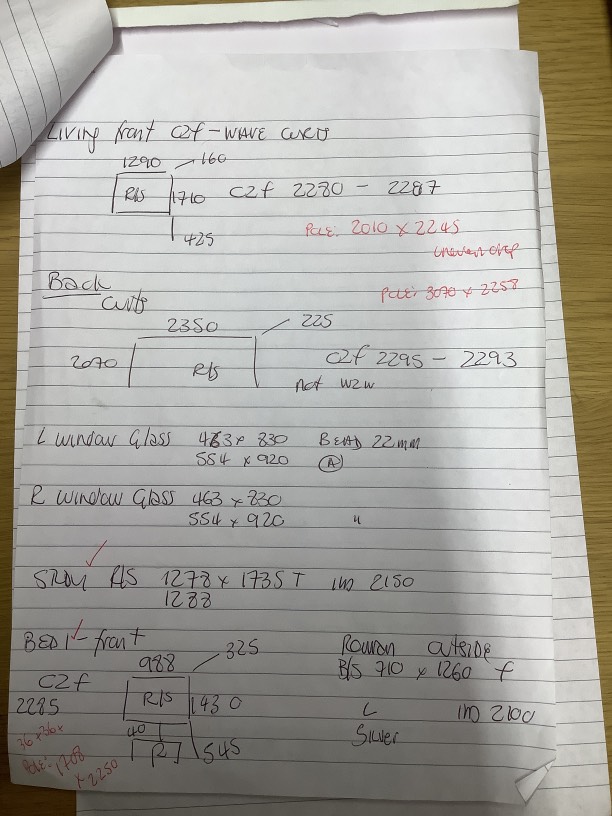 Living front C2f - WAVE curts
1290 160
R/S 1710 C2f 2280 - 2287
425
Pole: 2010 x 2245
uneven drop
Back
curts
Pole: 3070 x 2258
2350 225
2070 R/S C2f 2295 - 2293
not W2W
L window Glass 463 x 830 BEAD 22mm
554 x 920 A
R window Glass 463 x 830
554 x 920 "
R/S 1278 x 1735 T 2150
1288
BED 1 - front
988 325
Roman outside
B/S 710 x 1260 f
C2f
2285 R/S 1430
L 2100
Silver
40
R 545
Pole: 1708
x 2250